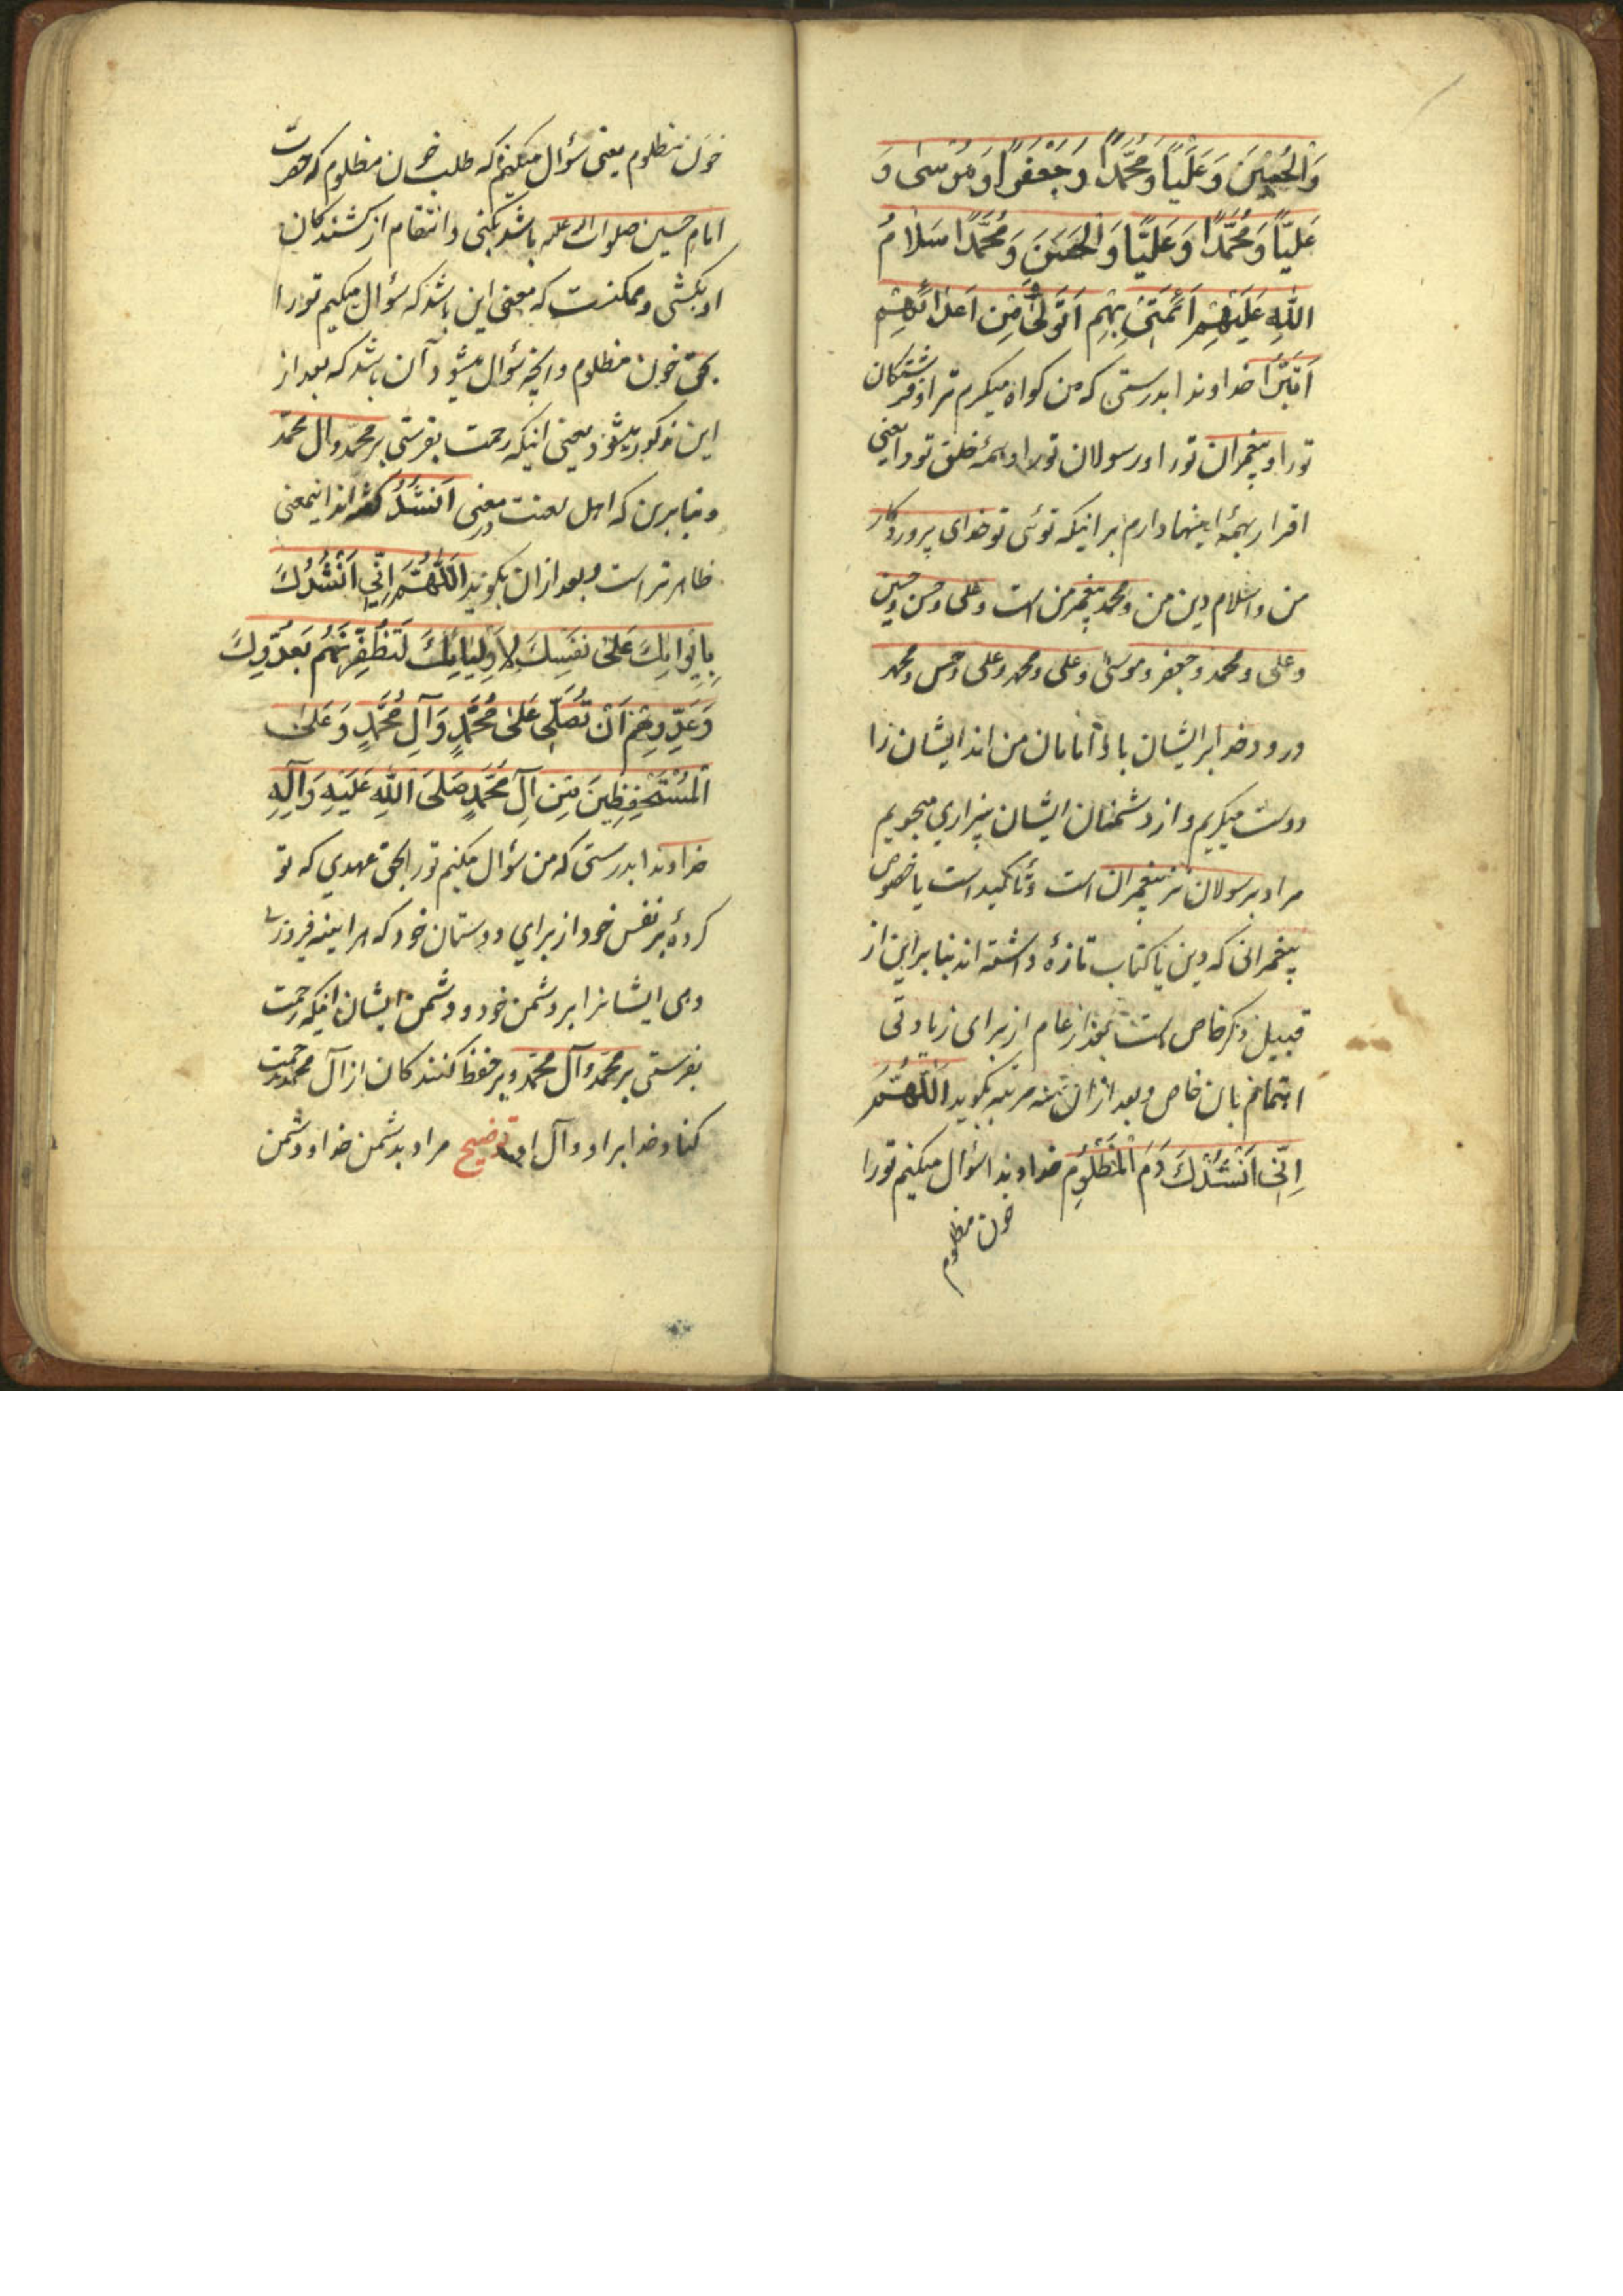 وَالْحُسَيْنَ وَعَلَيًّا وَمُحَمَّدًا وَجَعْفَرًا وَمُوسىٰ وَ
عَلِيًّا وَمُحَمَّدًا وَعَلِيًّا وَالْحَسَنَ وَمُحَمَّدًا سَلَامُ
اللّٰهِ عَلَيْهِمْ اَئِمَّتِىْ بِهِمْ اَتَوَلّٰى وَمِنْ اَعْدَائِهِمْ
اَتَبَرَّأُ خداوندا بدرستی که من کواه میکیرم ترا و فرشتکان
تورا و پیغمبران تورا و رسولان تورا و همهٔ خلق تورا یعنی
اقرار بهمهٔ اینها دارم برانیکه توئی تو خدای پروردکار
من و اسلام دین من و محمد پیغمبر من است و علی و حسن و حسین
و علی و محمد و جعفر و موسی و علی و محمد و علی و حسن و محمد
درود خدا بر ایشان باد امامان من اند ایشان را
دوست میکیریم و از دشمنان ایشان بیزاری میجویم
مراد برسولان نیز پیغمبران است و تاکید است یا خصوص
پیغمبرانی که دین یا کتاب تازهٔ داشته اند بنا براین از
قبیل ذکر خاص است بعد از عام از برای زیادتی
اهتمام بان خاص و بعد ازان سه مرتبه بکوید اَللّٰهُمَّ
اِنّى اَنْشُدُكَ دَمَ الْمَظْلُومِ خداوندا سؤال میکنم تورا
خون مظلوم
خون مظلوم یعنی سؤال میکنم که طلب خون مظلوم که حضرت
امام حسین صلوات الله علیه باشد بکنی و انتقام از کشندکان
او بکشی و ممکنست که معنی این باشد که سؤال میکنم تورا
بحق خون مظلوم و انچه سؤال میشود آن باشد که بعد از
این مذکور میشود یعنی اینکه رحمت بفرستی بر محمد و ال محمد
و بنابرین که اهل لغت در معنی اَنْشُدُ کفته اند اینمعنی
ظاهر تر است و بعد ازان بکوید اَللّٰهُمَّ اِنّى اَنْشُدُكَ
بِاِيْوَائِكَ عَلىٰ نَفْسِكَ لِاَوْلِيَائِكَ لَتُظْفِرَنَّهُمْ بِعَدُوِّكَ
وَعَدُوِّهِمْ اَنْ تُصَلِّىَ عَلىٰ مُحَمَّدٍ وَآلِ مُحَمَّدٍ وَعَلىٰ
الْمُسْتَحْفِظِينَ مِنْ آلِ مُحَمَّدٍ صَلَّى اللّٰهُ عَلَيْهِ وَآلِهِ
خداوندا بدرستی که من سؤال میکنم تورا بحق عهدی که تو
کردهٔ بر نفس خود از برای دوستان خود که هراینه فیروزی
دهی ایشانرا بر دشمن خود و دشمن ایشان اینکه رحمت
بفرستی بر محمد و آل محمد و بر حفظ کنندکان از آل محمد رحمت
کناد خدا براو و آل او توضیح مراد بدشمن خدا و دشمن